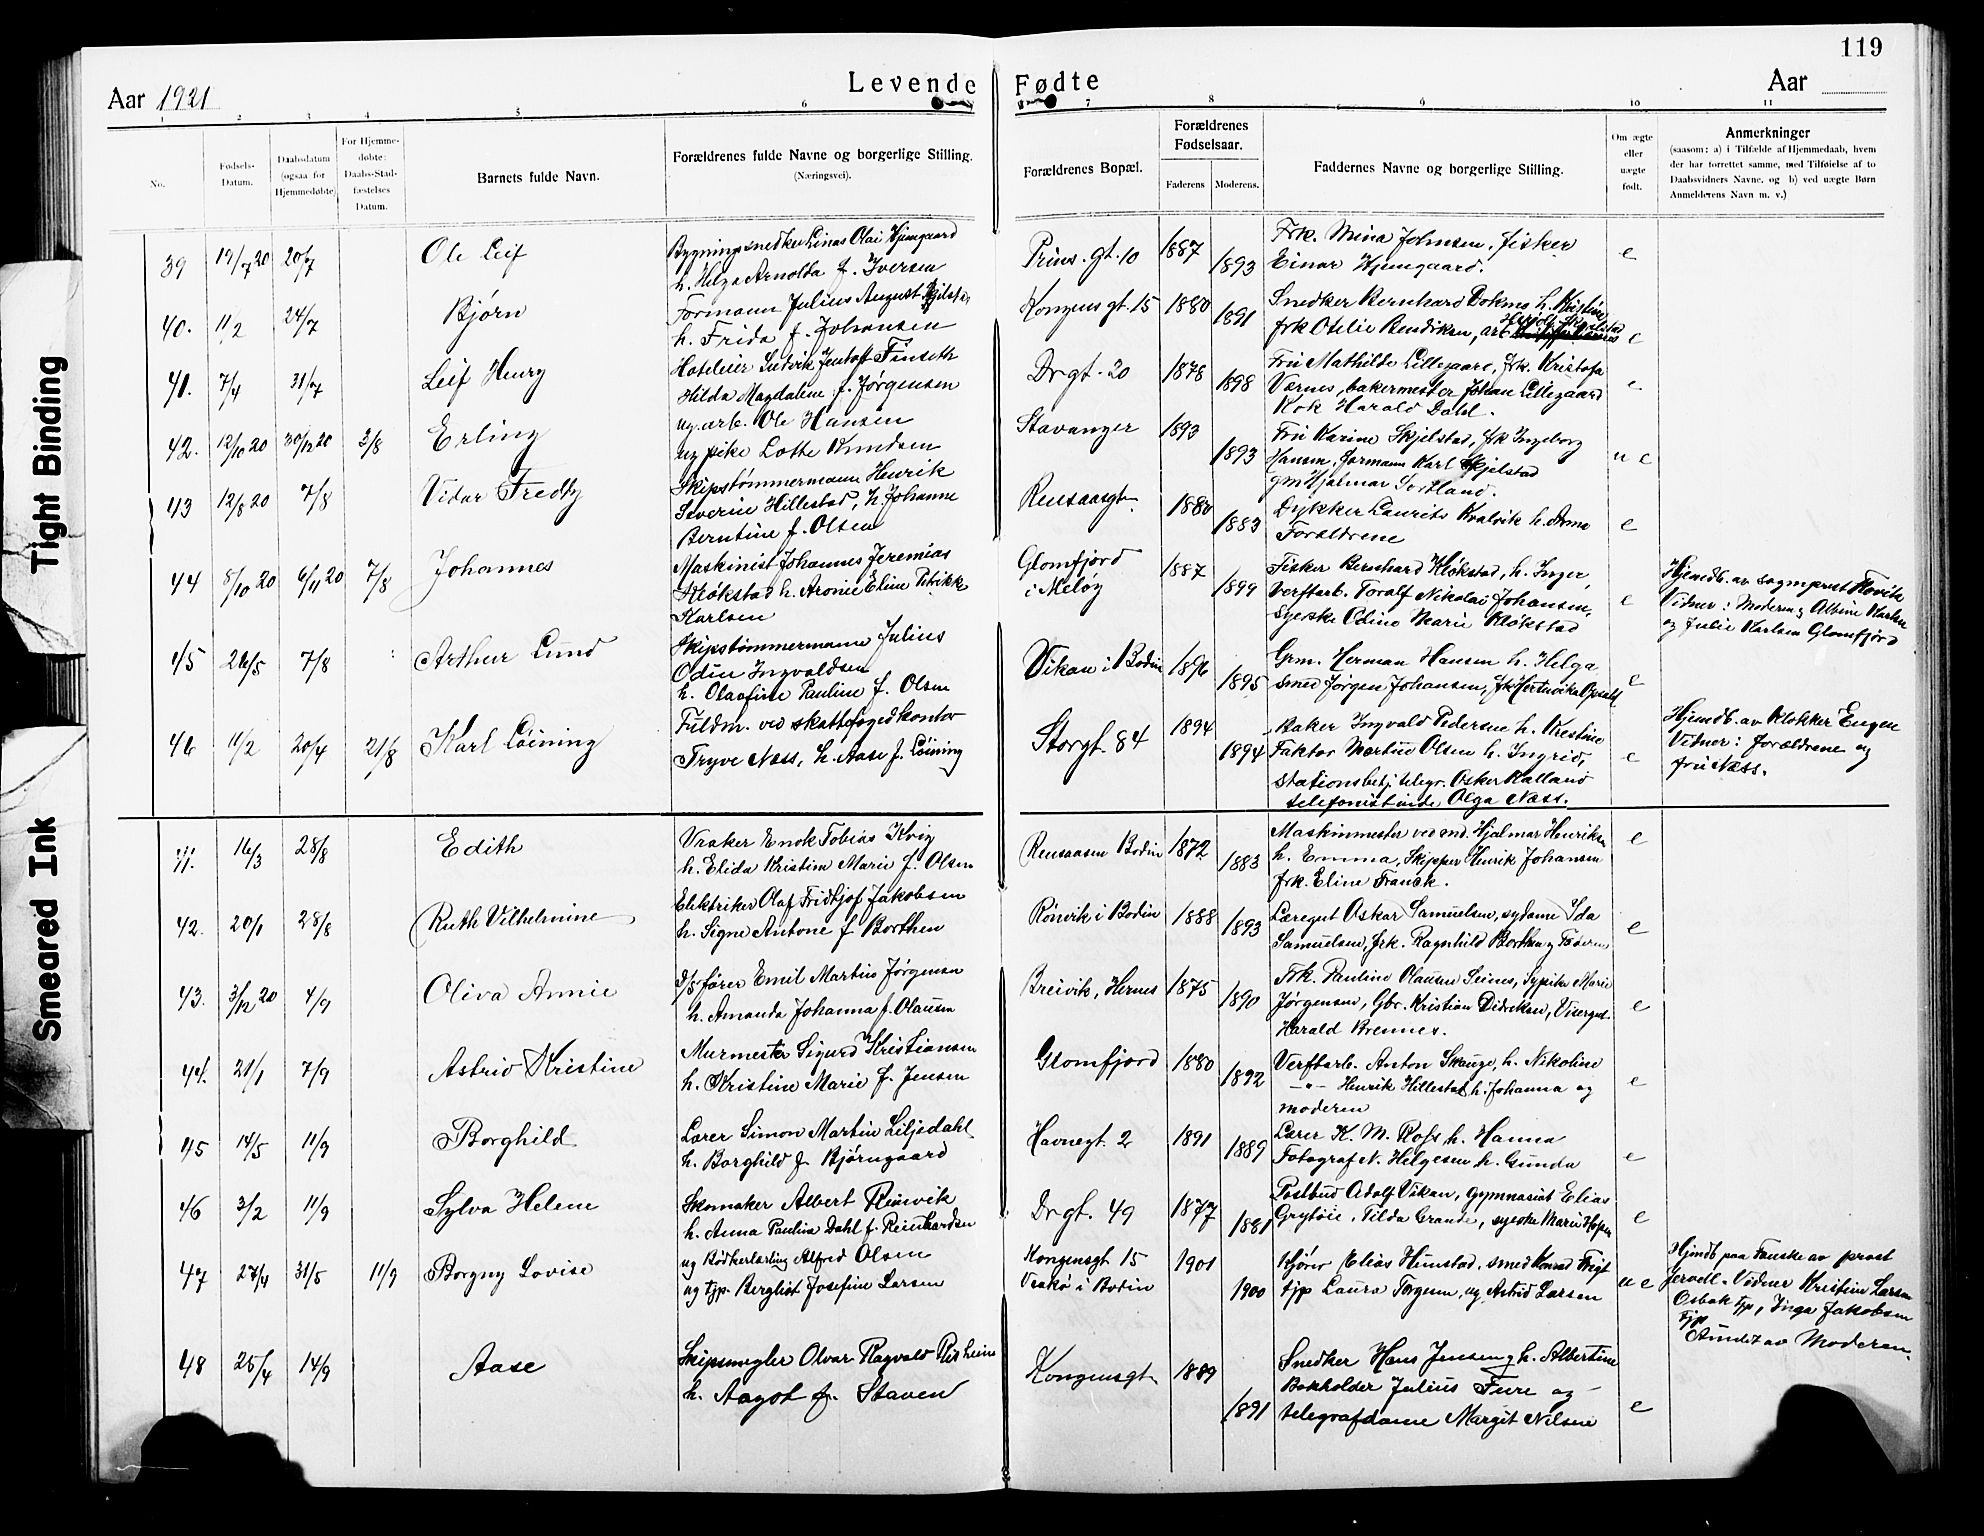 119
Levende Fødte
Aar 1921
Aar
1 2 3 4 5 6 7 8 9 10 11
No.
Fødsels-
Datum.
Daabsdatum
(ogsaa for
Hjemmedøbte)
For Hjemme-
døbte:
Daabs-Stad-
fæstelses
Datum.
Barnets fulde Navn.
Forældrenes fulde Navne og borgerlige Stilling.
(Næringsvei).
Forældrenes Bopæl.
Forældrenes
Fødselsaar.
Faderens. Moderens.
Faddernes Navne og borgerlige Stilling.
Om ægte
eller
uægte
født.
Anmerkninger
(saasom: a) i Tilfælde af Hjemmedaab, hvem
der har forrettet samme, med Tilføielse af to
Daabsvidners Navne, og b) ved uægte Børn
Anmelderens Navn m. v.)
39 19/7 20 20/7 Ole Leif
Bygningssnedker Linas Olai Hjemgaard
h. Helga Arnolda f. Iversen
Prins. gt. 10 1887 1893
Frk. Mina Johnsen, fisker
Einar Hjemgaard. e
40. 11/2 24/7 Bjørn
Formann Julius August Skjelstad
h. Frida f. Johansen
Kongens gt. 15 1880 1891
Snedker Bernhard Dokmo h. Kristine
frk Otelie Bendiksen, arb. e
41. 7/4 31/7 Leif Henry
Hotelier Ludvik Jentoft Finseth
Hilda Magdalene f. Jørgensen
Dr gt. 20 1878 1898
Fru Mathilde Lillegaard, frk. Kristofa
Værnes, bakermester Johan Lillegaard
Kok Harald Dahl. e
42. 12/10 20 30/12 20 3/8 Erling
ug. arb. Ole Hansen
ug pike Lotte Knudsen
Stavanger 1893 1893
Fru Karine Skjelstad, frk Ingeborg
Hansen, formann Karl Skjelstad
gm Hjalmar Sortland. u e
43 12/8 20 7/8 Vidar Fredly
Skipstømmermann Henrik
Severin Hillestad, h. Johanne
Berntine f. Olsen
Rensaasgt. 1880 1883
Dykker Laurits Kvalvik h. Anna
Forældrene e
44 8/10 20 6/11 20 7/8 Johannes
Maskinist Johannes Jeremias
Kløkstad h. Aronie Eline Petrikke
Karlsen
Glomfjord
i Meløy 1887 1899
Fisker Bernhard Kløkstad, h. Inger,
verftarb. Toralf Nikolai Johansen,
syerske Odine Marie Kløkstad e
Hjemdb. av sogneprest Hovik
Vidner: Moderen og Albine Karlsen
og Julie Karlsen Glomfjord
45 26/5 7/8 Arthur Lund
Skipstømmermann Julius
Odin Ingvaldsen
h. Olaofine Pauline f. Olsen
Vikan i Bodin 1896 1895
Grm. Herman Hansen h. Helga
smed Jørgen Johansen, frk Hertevika Opsahl e
46 11/2 20/4 21/8 Karl Löining
Fuldm. ved skattefogedkontor
Trygve Næss, h. Aase f. Löining
Storgt. 84 1894 1894
Baker Ingvald Pedersen h. Kristine
Faktor Martin Olsen h. Ingrid,
stationsbetj. telegr. Osker Kalland
telefonistinde Olga Næss. e
Hjemdb. av klokker Engen
Vidner: forældrene og
fru Næss.
41. 16/3 28/8 Edith
Vraker Enok Tobias Kvig
h. Elida Kristine Marie f. Olsen
Rensaasen Bodin 1872 1883
Maskinmester ved md. Hjalmar Henriksen
h. Emma, Skipper Henrik Johansen
frk. Eline Franck. e
42. 20/1 28/8 Ruth Vilhelmine
Elektriker Olaf Fridtjof Jakobsen
h. Signe Antone f Borthen
Rönvik i Bodin 1888 1893
Læregut Oskar Samuelsen, sydame Ida
Samuelsen, frk. Ragnhild Borthen og Faderen e
43. 3/12 20 4/9 Oliva Annie
D/S fører Emil Martin Jørgensen
h. Amanda Johanna f. Olausen
Breivik, Hernes 1875 1890
Frk. Pauline Olausen Seines, Sypike Marie
Jørgensen, Gbr. Kristian Didriksen, Visergut
Harald Brennes. e
44. 21/1 7/9 Astrid Kristine
Murmester Sigurd Kristiansen
h. Kristine Marie f. Jensen
Glomfjord 1880 1892
Verftarb. Anton Skauge, h. Nikoline
-"- Henrik Hillestad h. Johanna og
moderen e
45 14/5 11/9 Borghild
Lærer Simon Martin Liljedahl
h. Borghild f Bjørngaard
Havnegt. 2 1891 1889
Lærer K. M. Ross h. Hanna
Fotograf N. Helgesen h. Gunda e
46 3/2 11/9 Sylva Helene
Skomaker Albert Reisvik
h. Anna Paulina Dahl f. Reinhardsen
Dr gt. 49 1877 1881
Postbud Adolf Vikan, gymnasiat Elias
Grytöie, Tilda Grande, syerske Marie Hopen e
47 27/4 31/5 11/9 Borgny Lovise
ug Bödkerlærling Alfred Olsen
ug tjp. Bergliot Josefine Larsen
Kongensgt 15
i Bodin 1901 1900
Kjører Elias Hunstad, smed Konrad
tjp Laura Torgersen, ug. Astrid Larsen u e
Hjemdb paa Fauske av prest
Vidner Kristine Larsen
Osbak tjp, Inga Jakobsen
tjp
Anmeldt av Moderen.
48 25/4 14/9 Aase
Skipsmegler Olvar Ragvald Reisheim
h. Aagot f. Staven
Kongensgt 1889 1891
Snedker Hans Jensen og h. Albertine
Bokholder Julius Fure og
telegrafdame Margit Nilsen e
Tight Binding
Smeared Ink